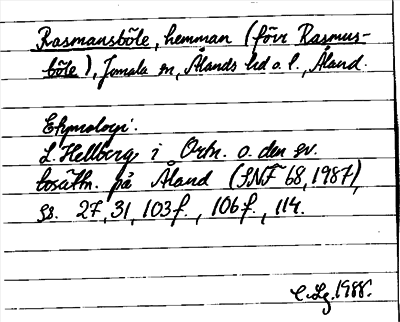 Rasmansböle, hemman (förr Rasmus-
böle), Jomala sn, Ålands hd o. l., Åland.
Etymologi.
L. Hellberg i Ortn. o. den sv.
bosättn. på Åland (SNF 68, 1987),
ss. 27, 31, 103 f., 106 f., 114.
C. Lg. 1988.